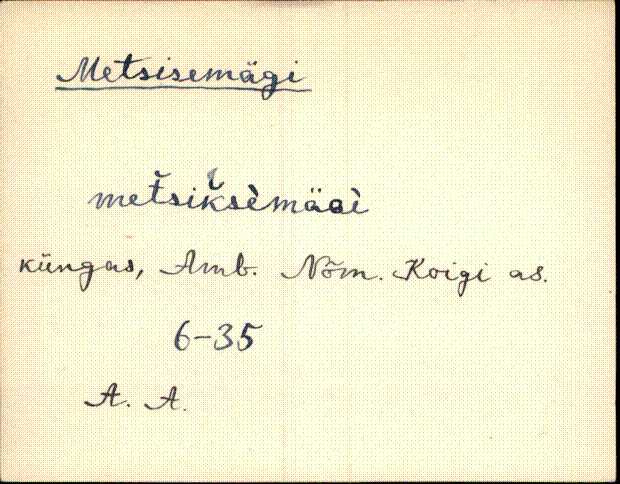 Metsisemägi
met̆sik̆sèmäɢì
küngas, Amb. Nõm. Koigi as.
6-35
A. A.